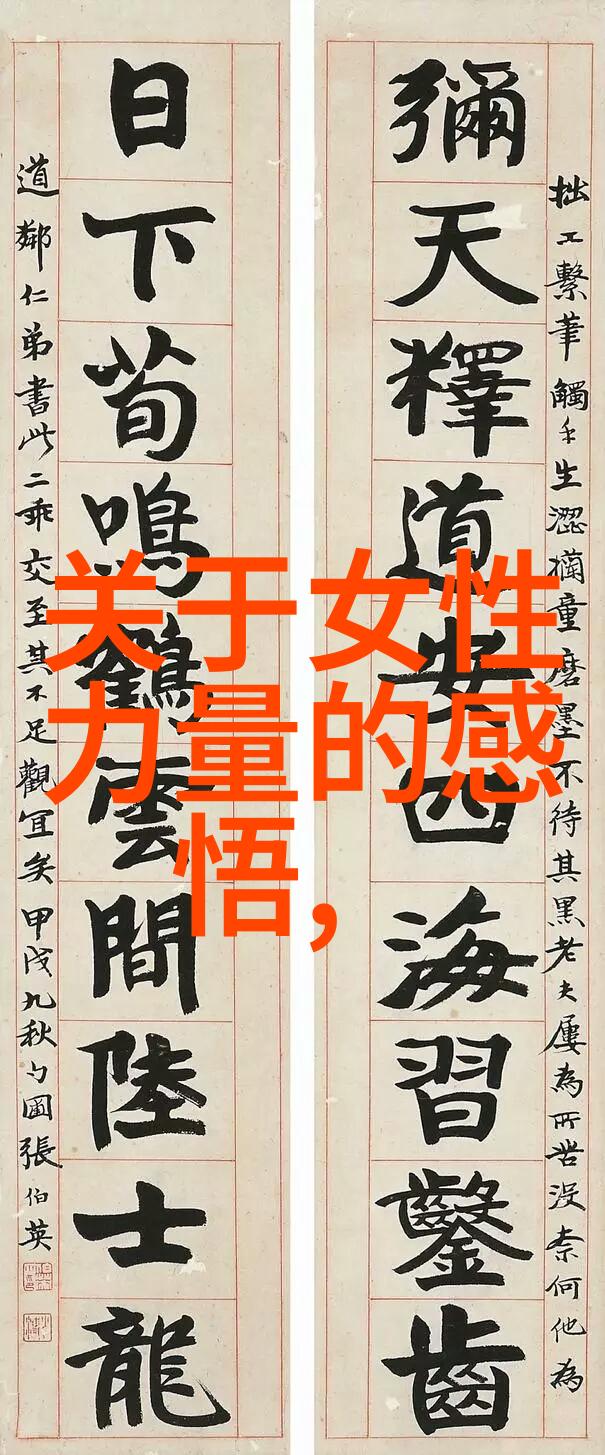 拙工繫筆觸手生澀懶童磨墨不待其黑老夫屢為所苦沒柰何他為
彌天釋道安四海習鑿齒
日下荀鳴鶴雲間陸士龍
道鄰仁弟書此二乖交至其不足觀宜矣甲戌九秋勺圃張伯英
关于女性
力量的感
悟,